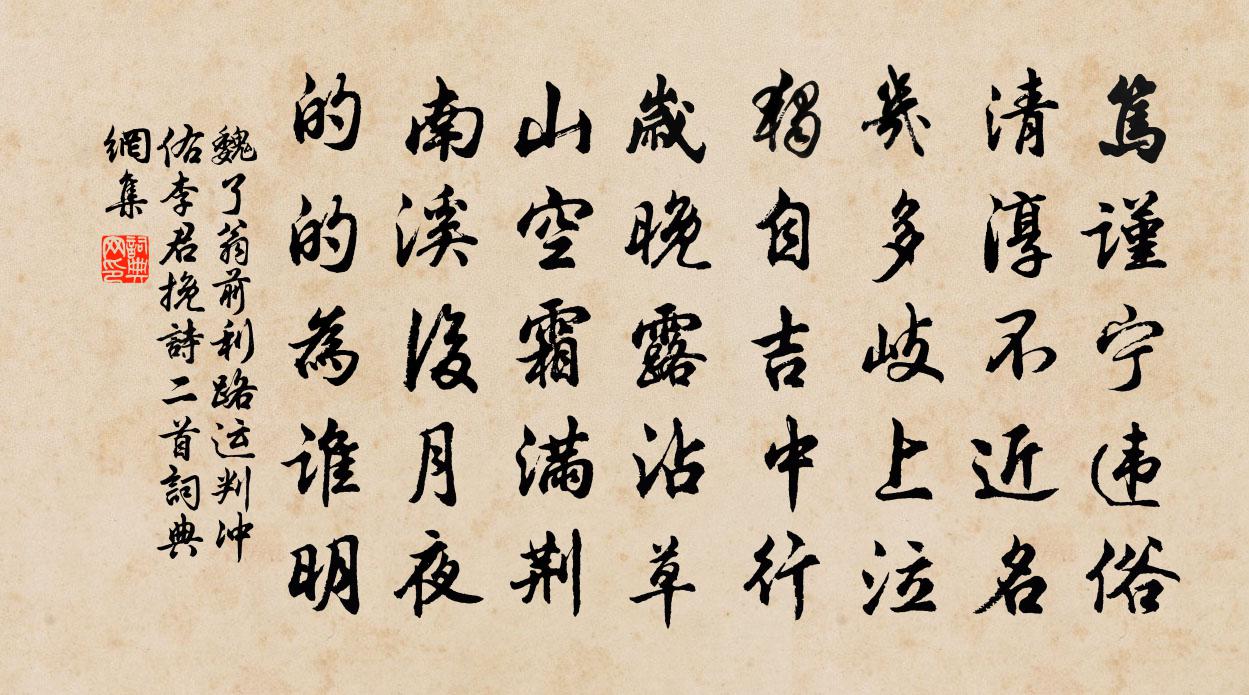 篤謹宁违俗
清淳不近名
幾多岐上泣
獨自吉中行
歲晚露沾草
山空霜滿荆
南溪後月夜
的的為誰明
魏了翁前利路运判沖
佑李君挽詩二首詞典
網集
詞典
网印